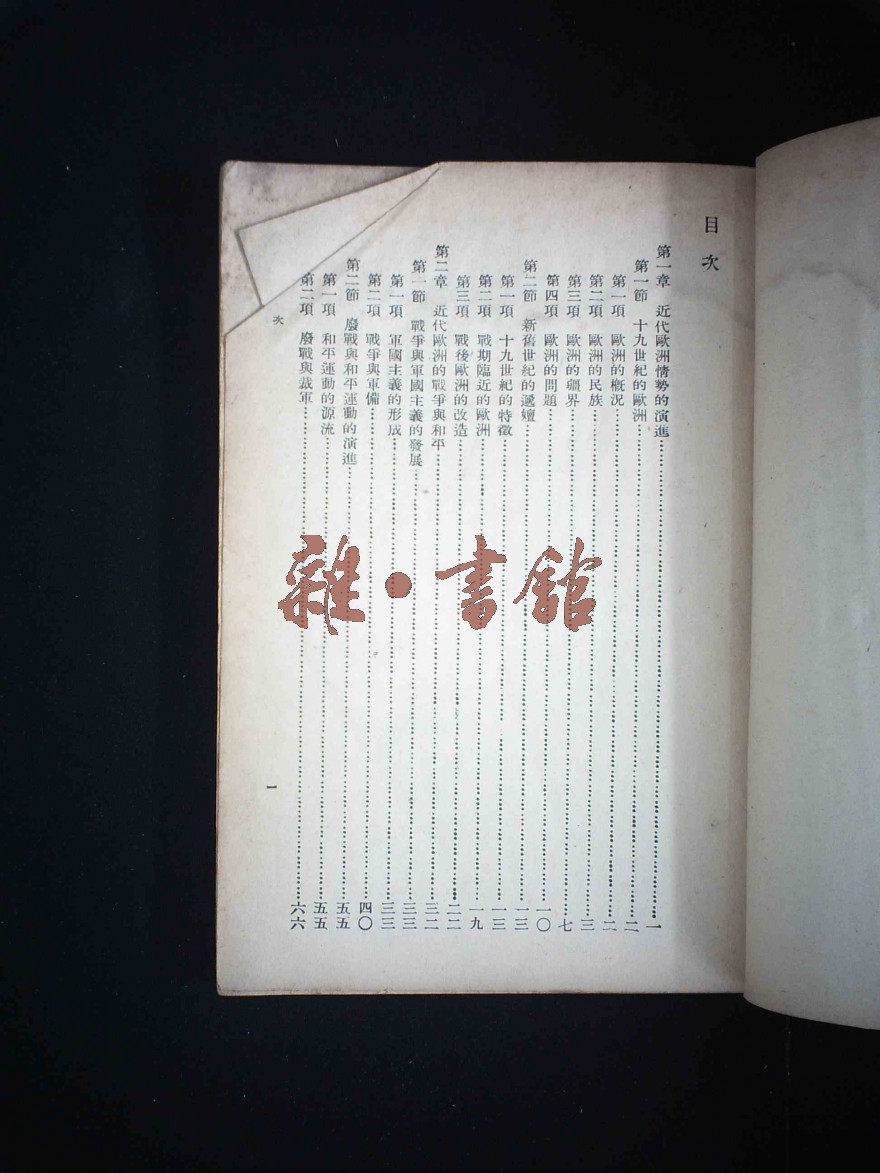 目次
第一章 近代歐洲情勢的演進……一
第一節 十九世紀的歐洲……二
第一項 歐洲的概況……二
第二項 歐洲的民族……三
第三項 歐洲的疆界……七
第四項 歐洲的問題……一〇
第二節 新舊世紀的遞嬗……一三
第一項 十九世紀的特徵……一三
第二項 戰期臨近的歐洲……一九
第三項 戰後歐洲的改造……二二
第二章 近代歐洲的戰爭與和平……三二
第一節 戰爭與軍國主義的發展……三三
第一項 軍國主義的形成……三三
第二項 戰爭與軍備……四〇
第二節 廢戰與和平運動的演進……五五
第一項 和平運動的源流……五五
第二項 廢戰與裁軍……六六
次
一
雜·書館